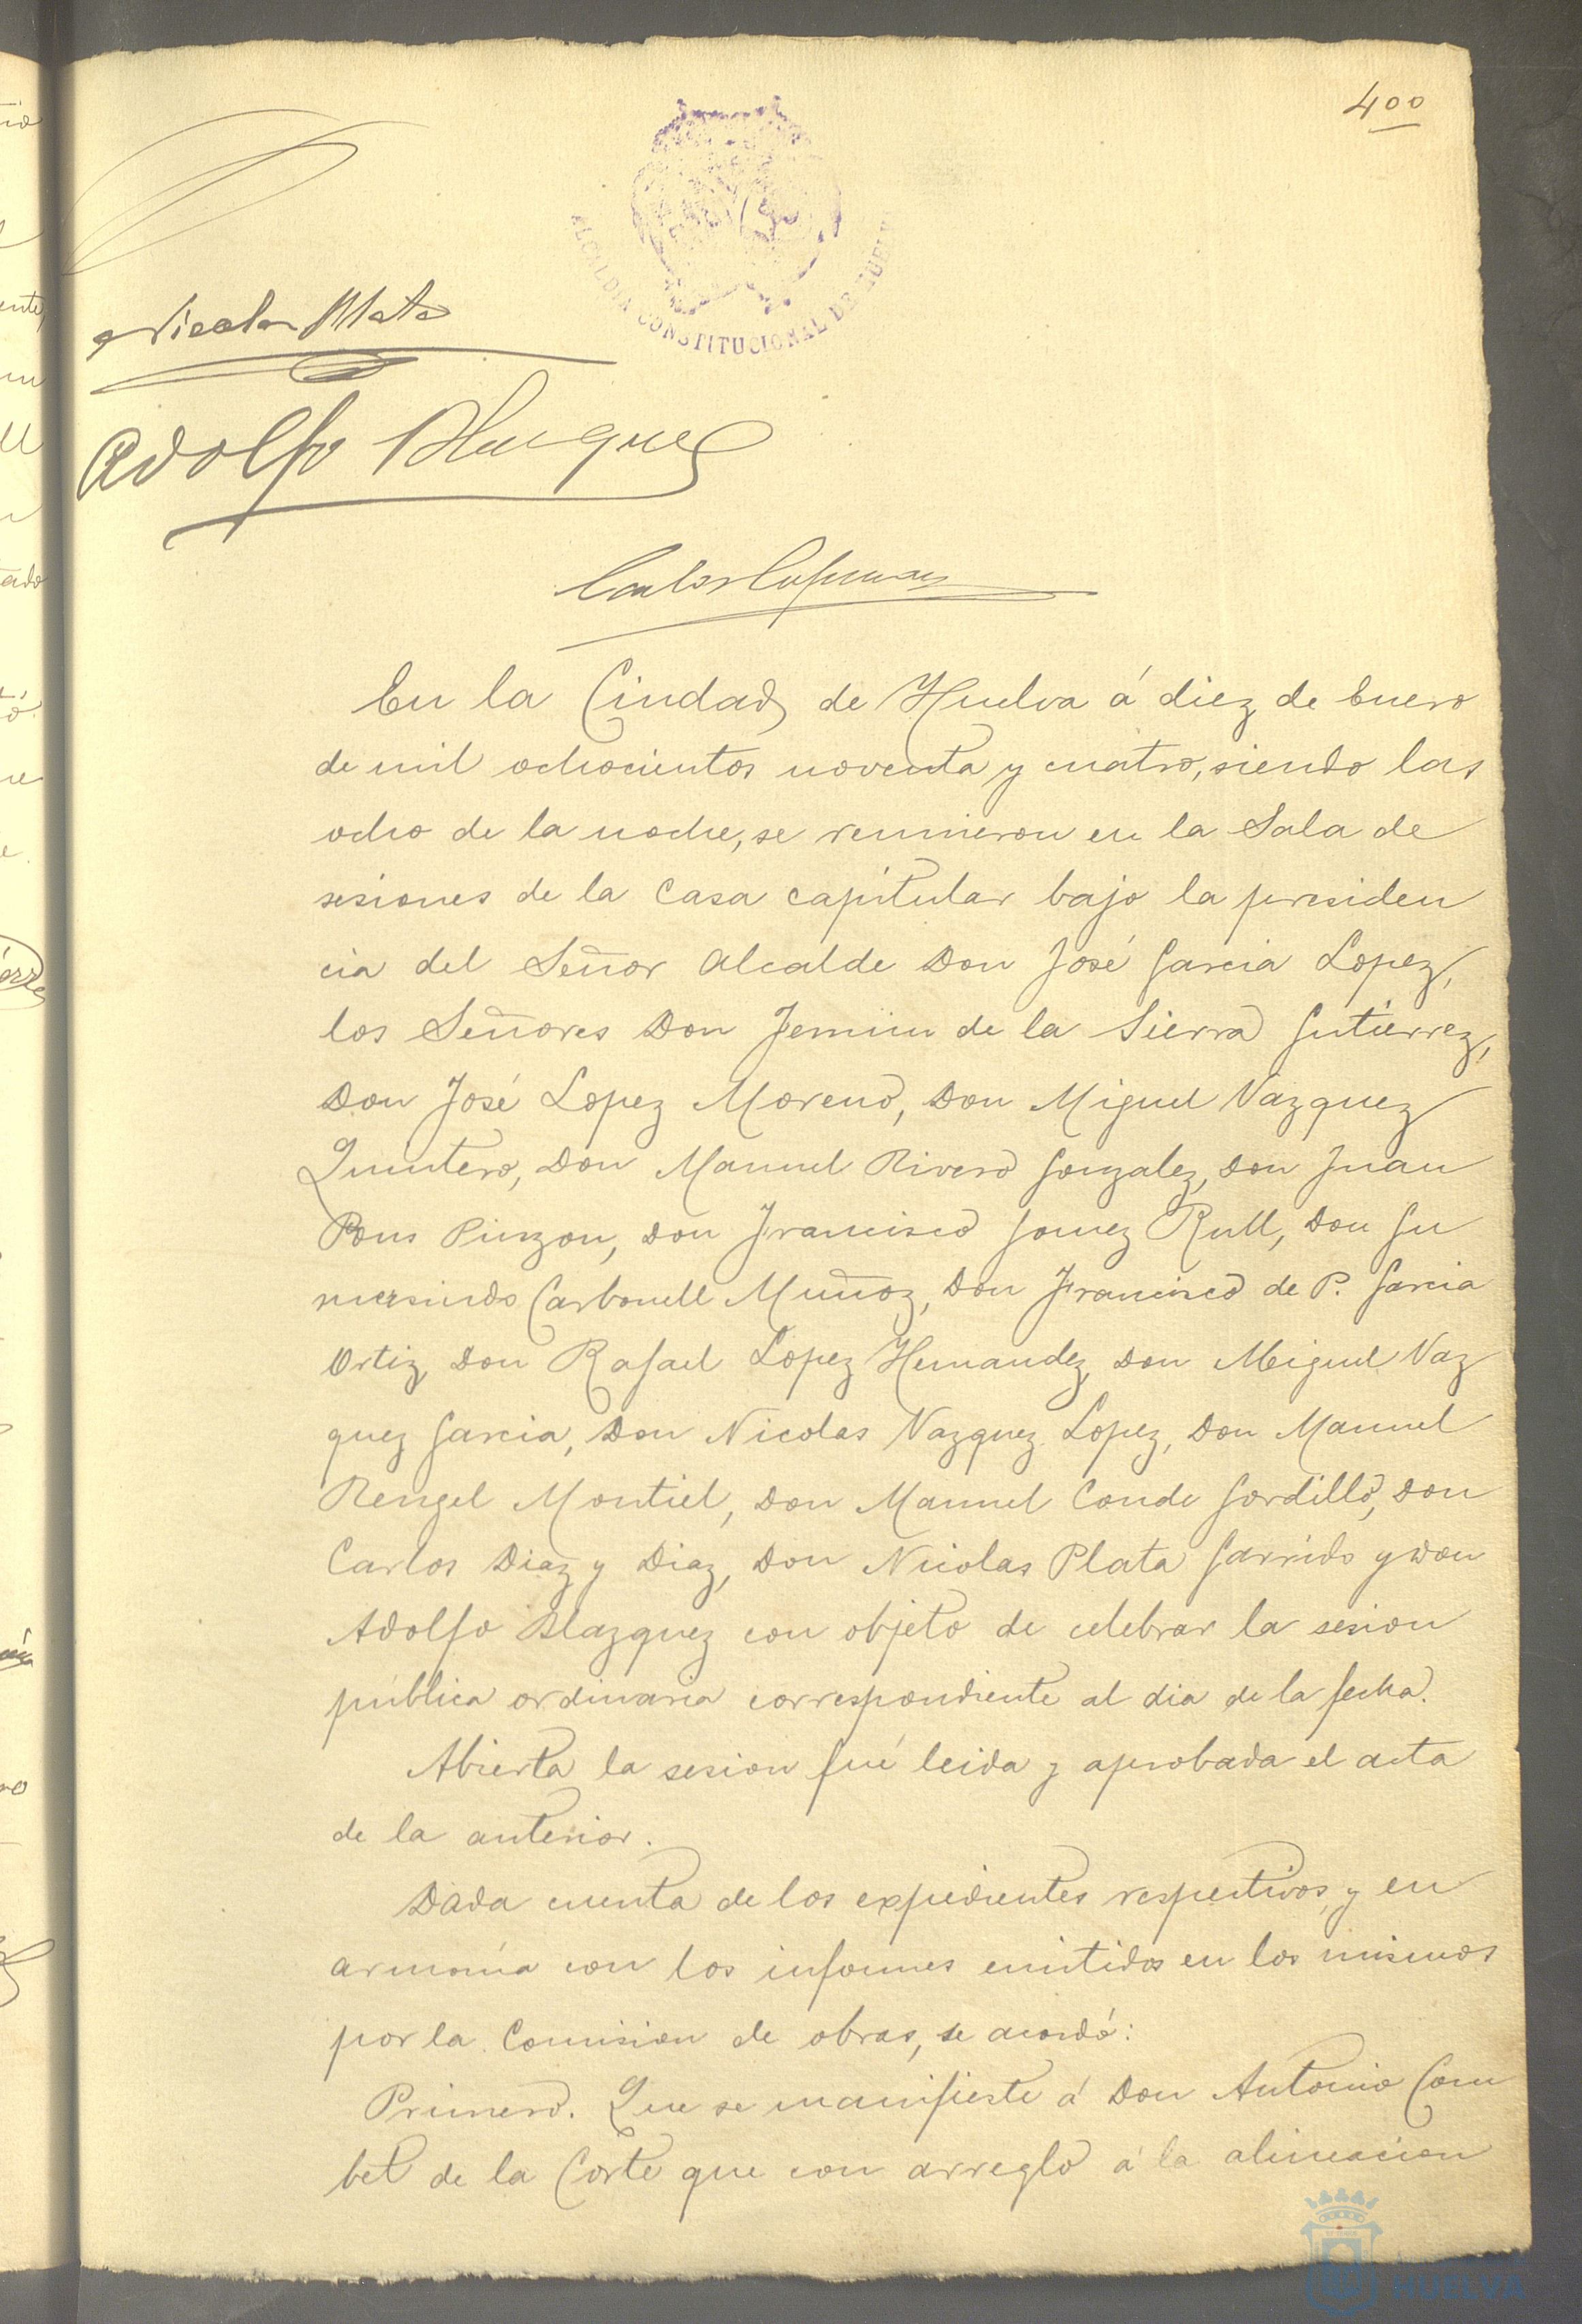 400
ALCALDIA CONSTITUCIONAL DE HUELVA
Nicolas Plata
Adolfo Blazquez
Carlos
En la Ciudad de Huelva á diez de Enero
de mil ochocientos noventa y cuatro, siendo las
ocho de la noche, se reunieron en la Sala de
sesiones de la Casa capitular bajo la presiden
cia del Señor Alcalde Don José Garcia Lopez,
los Señores Don Fermin de la Sierra Gutierrez,
Don José Lopez Moreno, Don Miguel Vazquez
Quintero, Don Manuel Rivero Gonzalez, Don Juan
Pons Pinzon, Don Francisco Gomez Rull, Don Gu
mersindo Carbonell Muñoz, Don Francisco de P. Garcia
Ortiz, Don Rafael Lopez Hernandez, Don Miguel Vaz
quez Garcia, Don Nicolas Vazquez Lopez, Don Manuel
Rengel Montiel, Don Manuel Conde Gordillo, Don
Carlos Diaz y Diaz, Don Nicolas Plata Garrido y Don
Adolfo Blazquez con objeto de celebrar la sesion
pública ordinaria correspondiente al dia de la fecha.
Abierta la sesion fué leida y aprobada el acta
de la anterior.
Dada cuenta de los expedientes respectivos, y en
armonía con los informes emitidos en los mismos
por la Comision de obras, se acordó:
Primero. Que se manifieste á Don Antonio Com
bet de la Corte que con arreglo á la alineacion
HUELVA